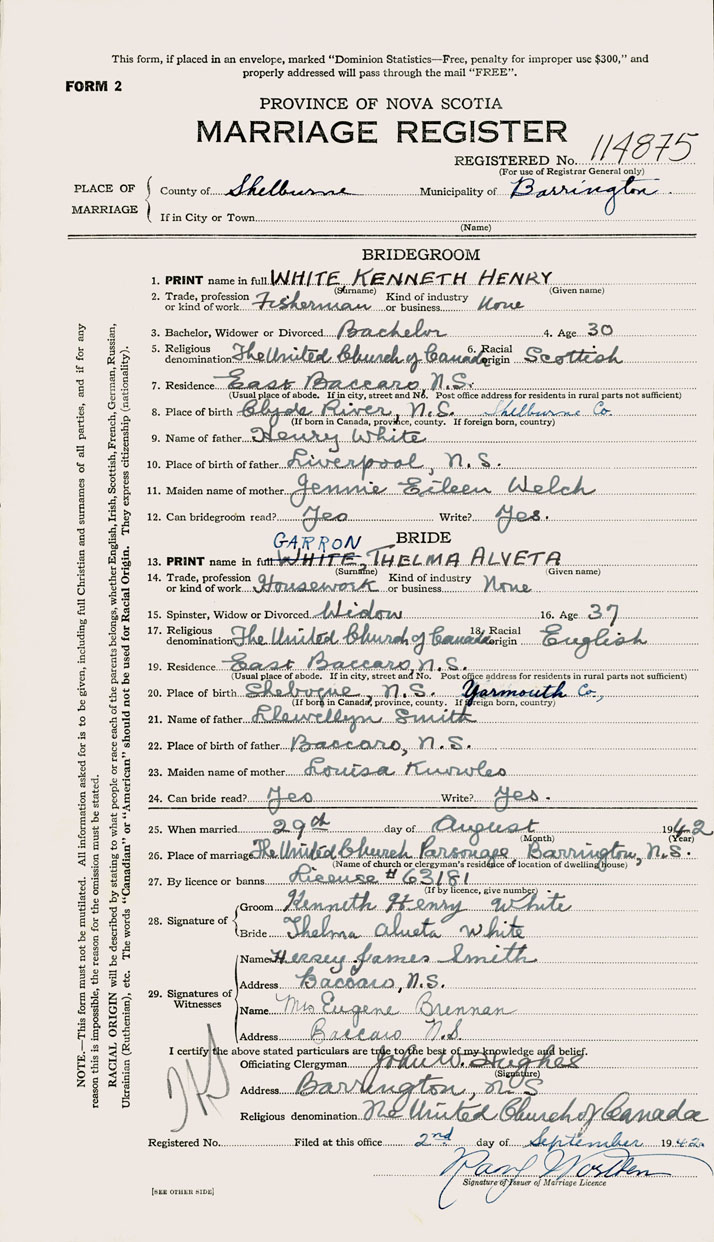 This form, if placed in an envelope, marked "Dominion Statistics—Free, penalty for improper use $300," and
properly addressed will pass through the mail "FREE".
FORM 2
PROVINCE OF NOVA SCOTIA
MARRIAGE REGISTER
REGISTERED No. 114875
(For use of Registrar General only)
PLACE OF MARRIAGE
County of Shelburne Municipality of Barrington
If in City or Town
(Name)
BRIDEGROOM
1. PRINT name in full WHITE KENNETH HENRY
(Surname) (Given name)
2. Trade, profession or kind of work Fisherman Kind of industry or business None
3. Bachelor, Widower or Divorced Bachelor 4. Age 30
5. Religious denomination The United Church of Canada 6. Racial origin Scottish
7. Residence East Baccaro, N.S.
(Usual place of abode. If in city, street and No. Post office address for residents in rural parts not sufficient)
8. Place of birth Clyde River, N.S. Shelburne Co.
(If born in Canada, province, county. If foreign born, country)
9. Name of father Henry White
10. Place of birth of father Liverpool, N.S.
11. Maiden name of mother Jennie Eileen Welch
12. Can bridegroom read? Yes Write? Yes.
BRIDE
GARRON
13. PRINT name in full WHITE, THELMA ALVETA
(Surname) (Given name)
14. Trade, profession or kind of work Housework Kind of industry or business None
15. Spinster, Widow or Divorced Widow 16. Age 37
17. Religious denomination The United Church of Canada 18. Racial origin English
19. Residence East Baccaro, N.S.
(Usual place of abode. If in city, street and No. Post office address for residents in rural parts not sufficient)
20. Place of birth Shebogue, N.S. Yarmouth Co.,
(If born in Canada, province, county. If foreign born, country)
21. Name of father Llewellyn Smith
22. Place of birth of father Baccaro, N.S.
23. Maiden name of mother Louisa Knowles
24. Can bride read? Yes Write? Yes.
25. When married 29th day of August 1942
(Month) (Year)
26. Place of marriage The United Church Parsonage, Barrington, N.S.
(Name of church or clergyman's residence of location of dwelling house)
27. By licence or banns License # 63181
(If by licence, give number)
28. Signature of
Groom Kenneth Henry White
Bride Thelma Alveta White
29. Signatures of Witnesses
Name Hersey James Smith
Address Baccaro, N.S.
Name Mrs Eugene Brennan
Address Baccaro N.S.
I certify the above stated particulars are true to the best of my knowledge and belief.
Officiating Clergyman John W. Hughes
(Signature)
Address Barrington, N.S
Religious denomination The United Church of Canada
Registered No. Filed at this office 2nd day of September 1942
Signature of Issuer of Marriage Licence
[SEE OTHER SIDE]
NOTE.—This form must not be mutilated. All information asked for is to be given, including full Christian and surnames of all parties, and if for any
reason this is impossible, the reason for the omission must be stated.
RACIAL ORIGIN will be described by stating to what people or race each of the parents belongs, whether English, Irish, Scottish, French, German, Russian,
Ukrainian (Ruthenian), etc. The words "Canadian" or "American" should not be used for Racial Origin. They express citizenship (nationality).